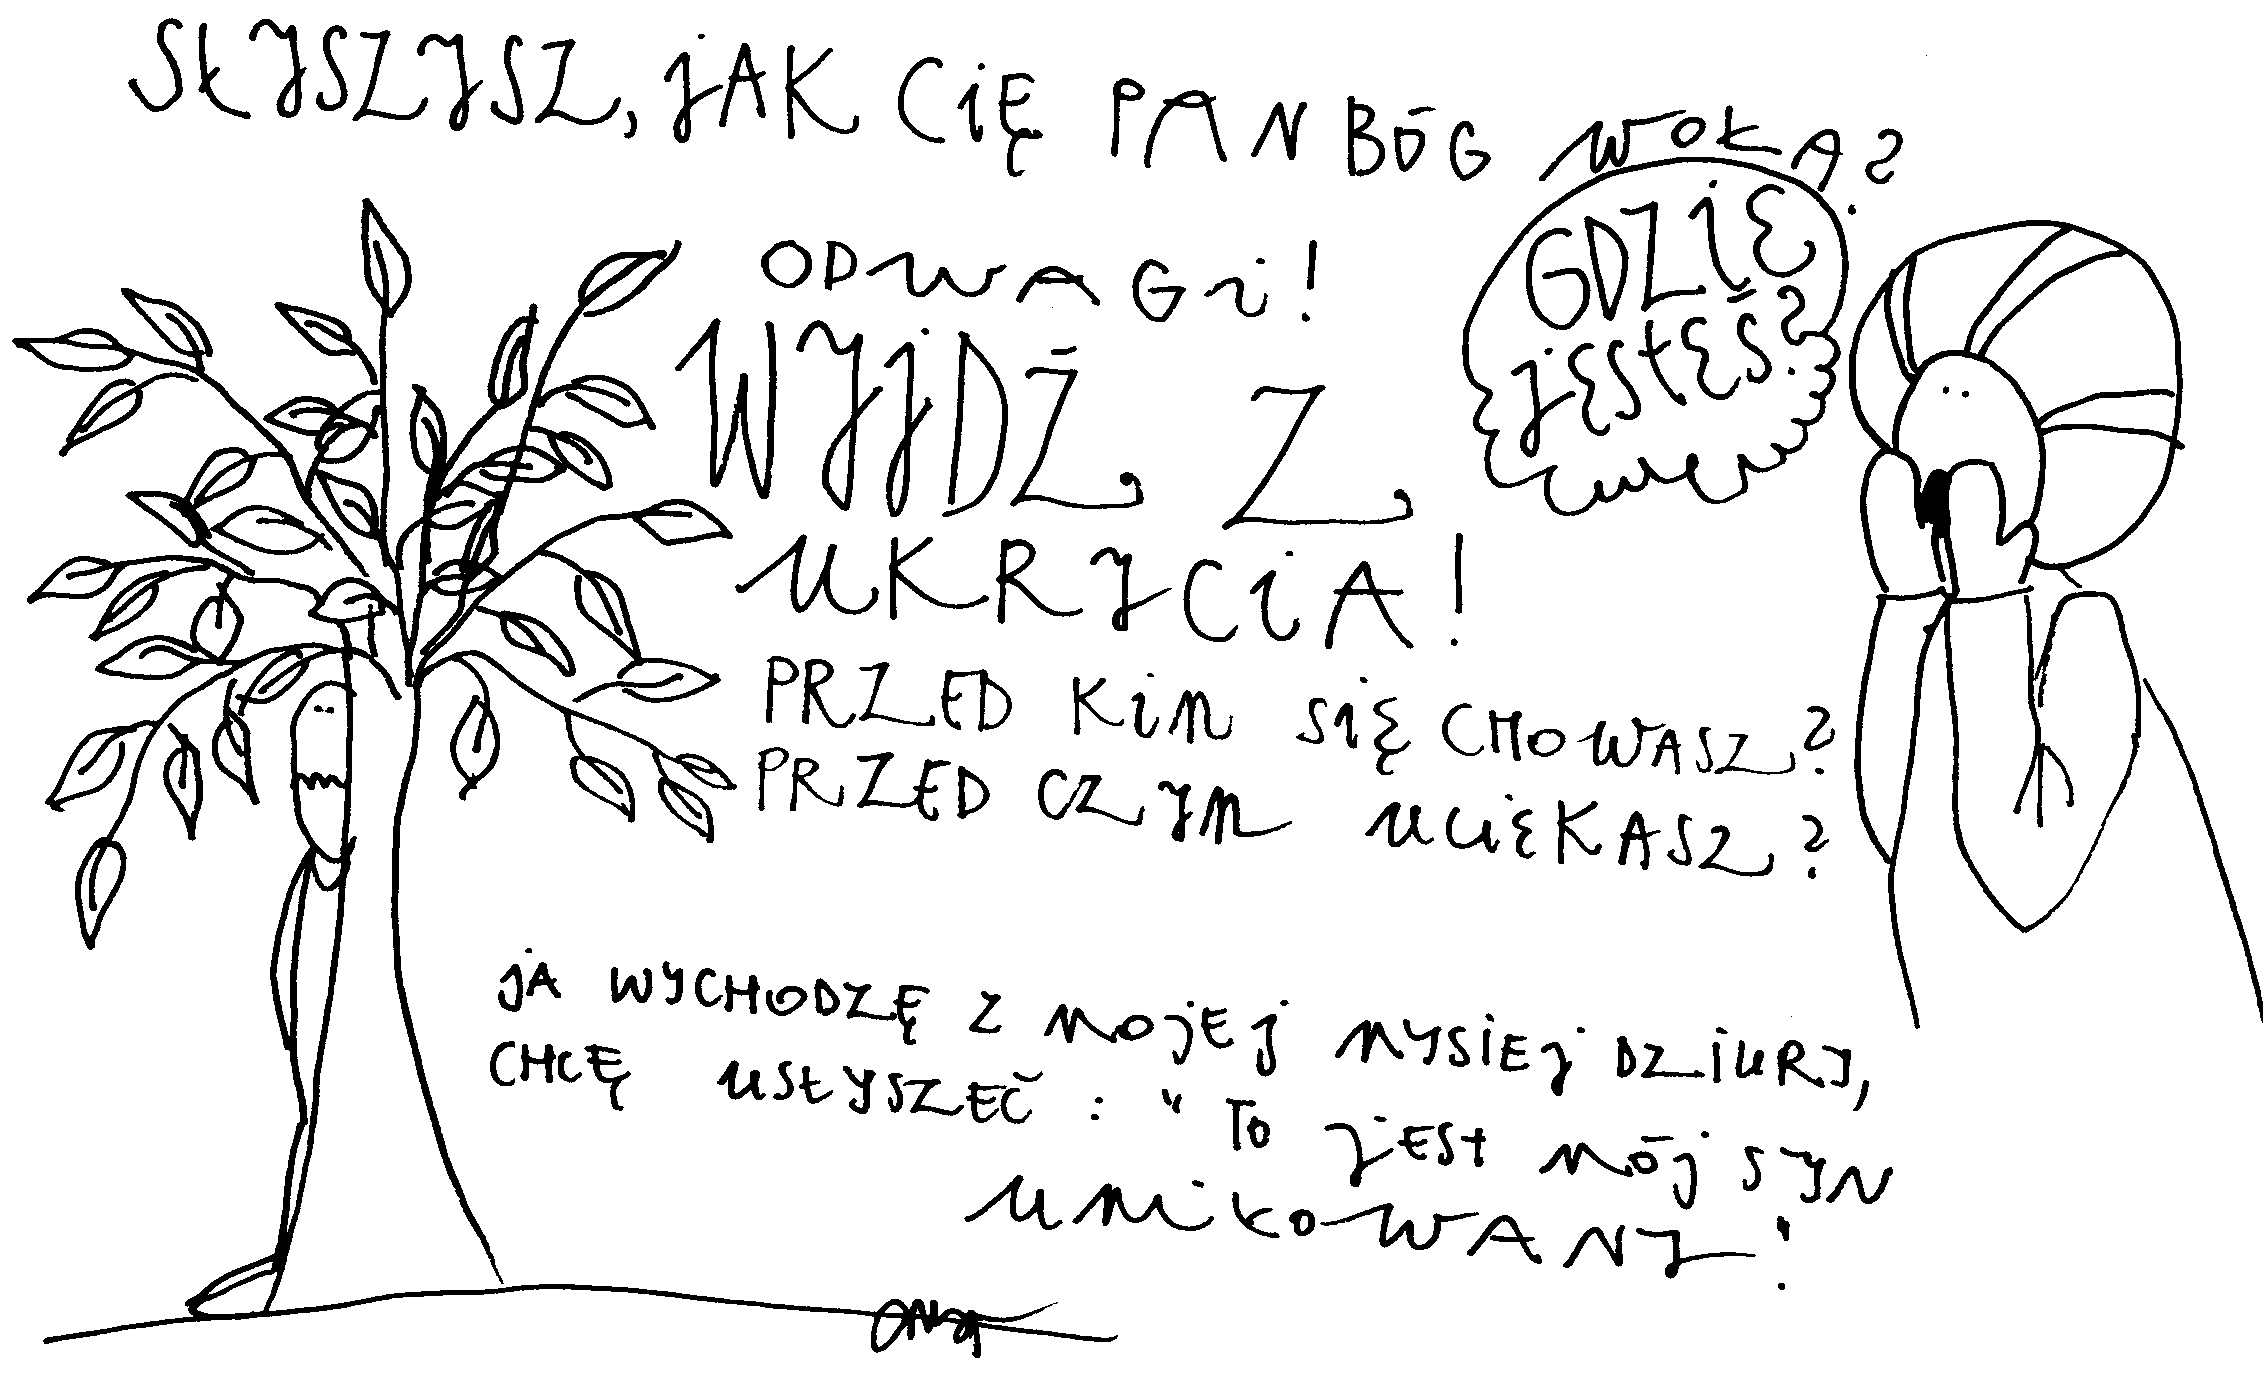 SŁYSZYSZ, JAK CIĘ PAN BÓG WOŁA?
ODWAGI!
GDZIE
JESTEŚ?
WYJDŹ Z
UKRYCIA!
PRZED KIM SIĘ CHOWASZ?
PRZED CZYM UCIEKASZ?
JA WYCHODZĘ Z MOJEJ MYSIEJ DZIURY,
CHCĘ USŁYSZEĆ: "TO JEST MÓJ SYN
UMIŁOWANY".